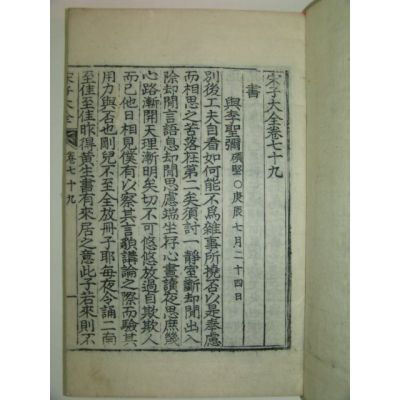 宋子大全卷七十九
書
與李聖彌 碩堅○庚辰七月二十四日
別後工夫自看如何能不爲雜事所撓否以是奉慮
而相思之苦落在第二矣須討一靜室斷却閒出入
除却閒言語息却閒思慮端坐好心晝讀夜思庶幾
心路漸開天理漸明矣切不可悠悠放過自欺欺人
而已他日相見僕有以察其言貌講論之際而驗其
用力與否也剛兒不至全放冊子耶每夜令誦二南
至佳至佳昨得黃生書有來居之意此子若來則不
宋子大全 卷七十九 一